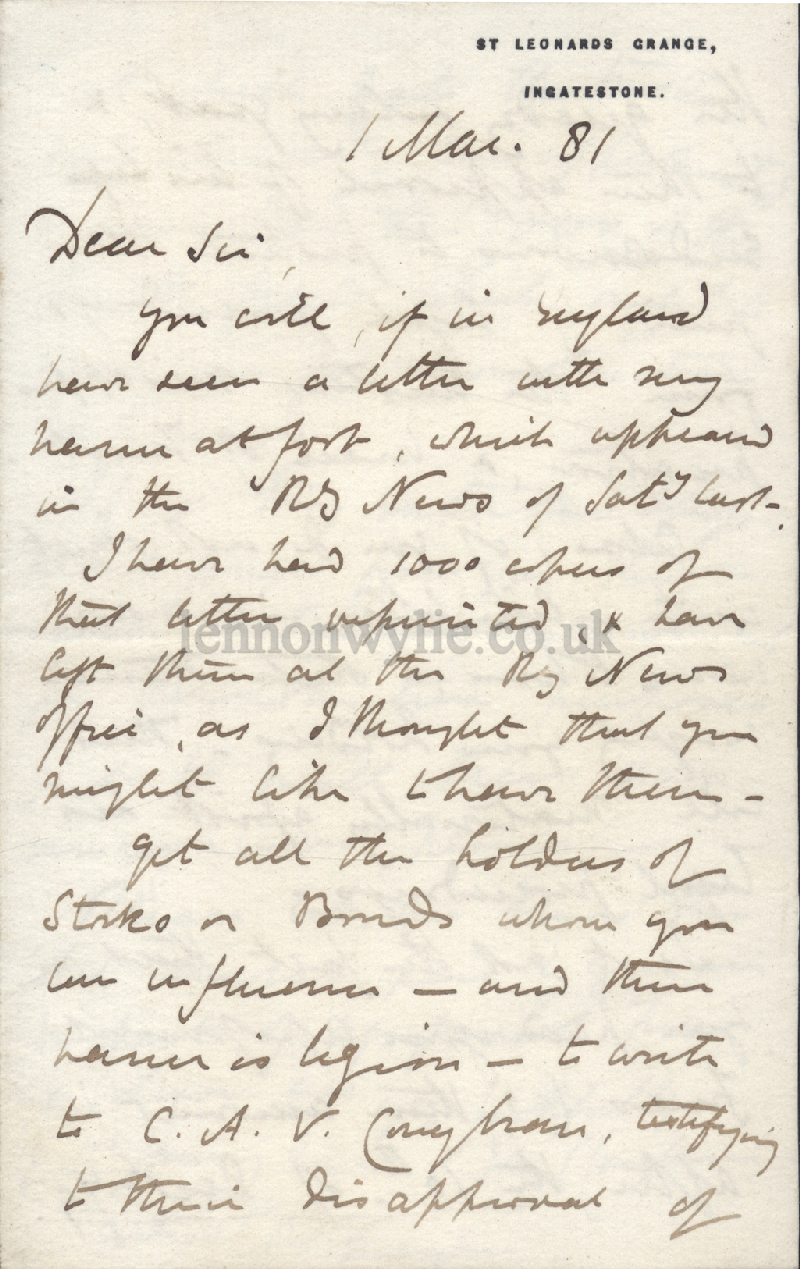 ST LEONARDS GRANGE,
INGATESTONE.
1 Mar. 81
Dear Sir,
you will, if in England
have seen a letter with my
name at foot, which appeared
in the Ry News of Saty last.
I have had 1000 copies of
that letter reprinted, & have
left them at the Ry News
office, as I thought that you
might like to have them -
get all the holders of
Stocks or Bonds whom you
can influence - and their
name is legion - to write
to C. A. V. Conybeare, testifying
to their disapproval of
lennonwylie.co.uk